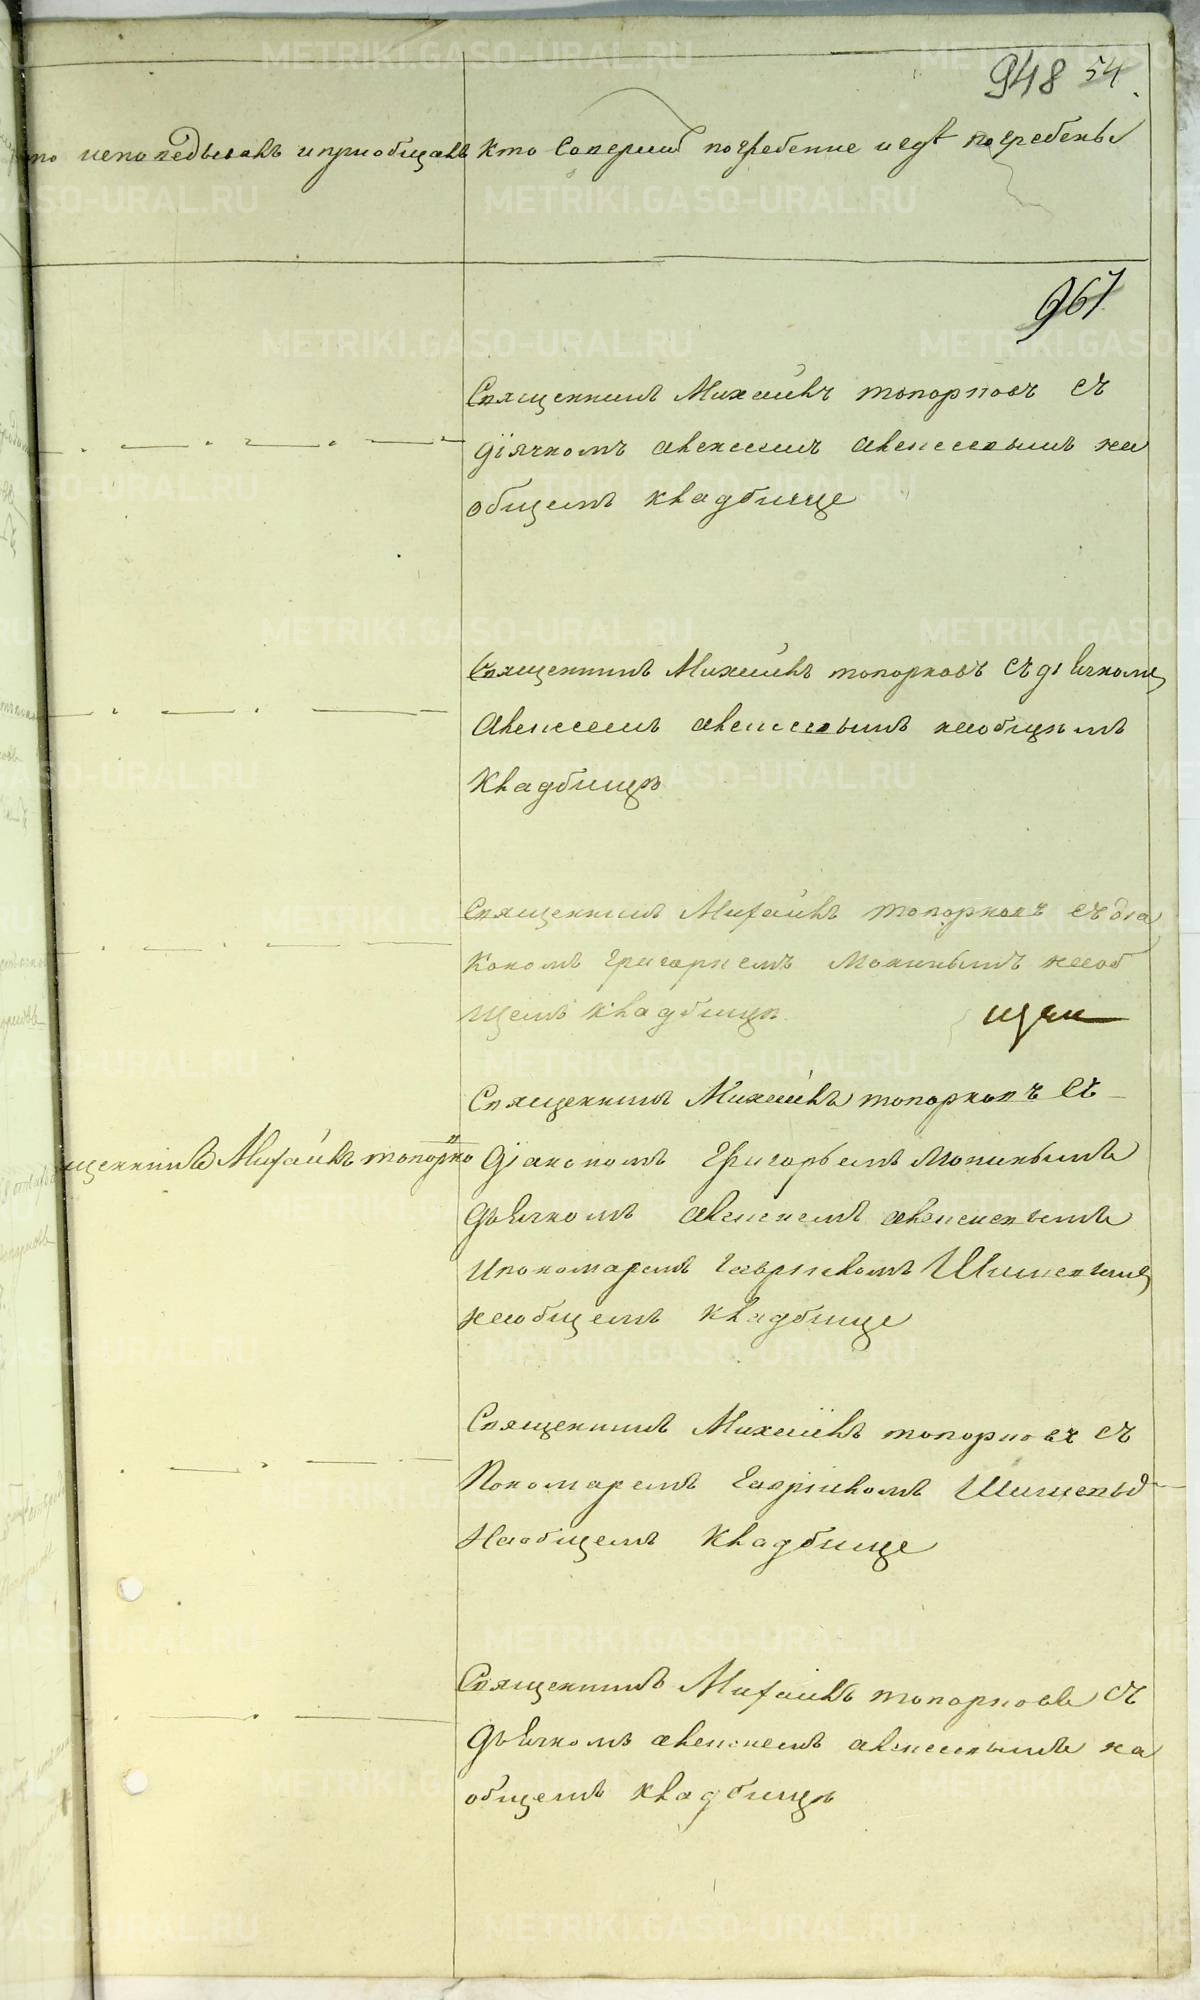 948 54.
то исповедывалъ и приобщалъ
Кто Совершил погребение и где погребены
967
Священникъ Михаилъ топорковъ съ
діячкомъ алексеем алексеевымъ на
общемъ кладбище
Священникъ Михаилъ топорковъ съ дьячкомъ
Алексеемъ алексеевымъ на общемъ
Кладбище
Священникъ Михаилъ топорковъ съ диа
кономъ григориемъ Мокинымъ на об
щемъ кладбище
Священникъ Михаилъ топорковъ съ
щенникъ Михаилъ топорко
діакономъ Григорьемъ Мокинымъ
дьячкомъ алексеемъ алексеевымъ
и пономаремъ гавриломъ Шишевымъ
на общемъ кладбище
Священникъ Михаилъ топорковъ съ
Пономаремъ гавриломъ
На общемъ Кладбище
Священникъ Михаилъ топорковъ съ
дьячкомъ алексеемъ алексеевымъ на
общемъ кладбище
METRIKI.GASO-URAL.RU